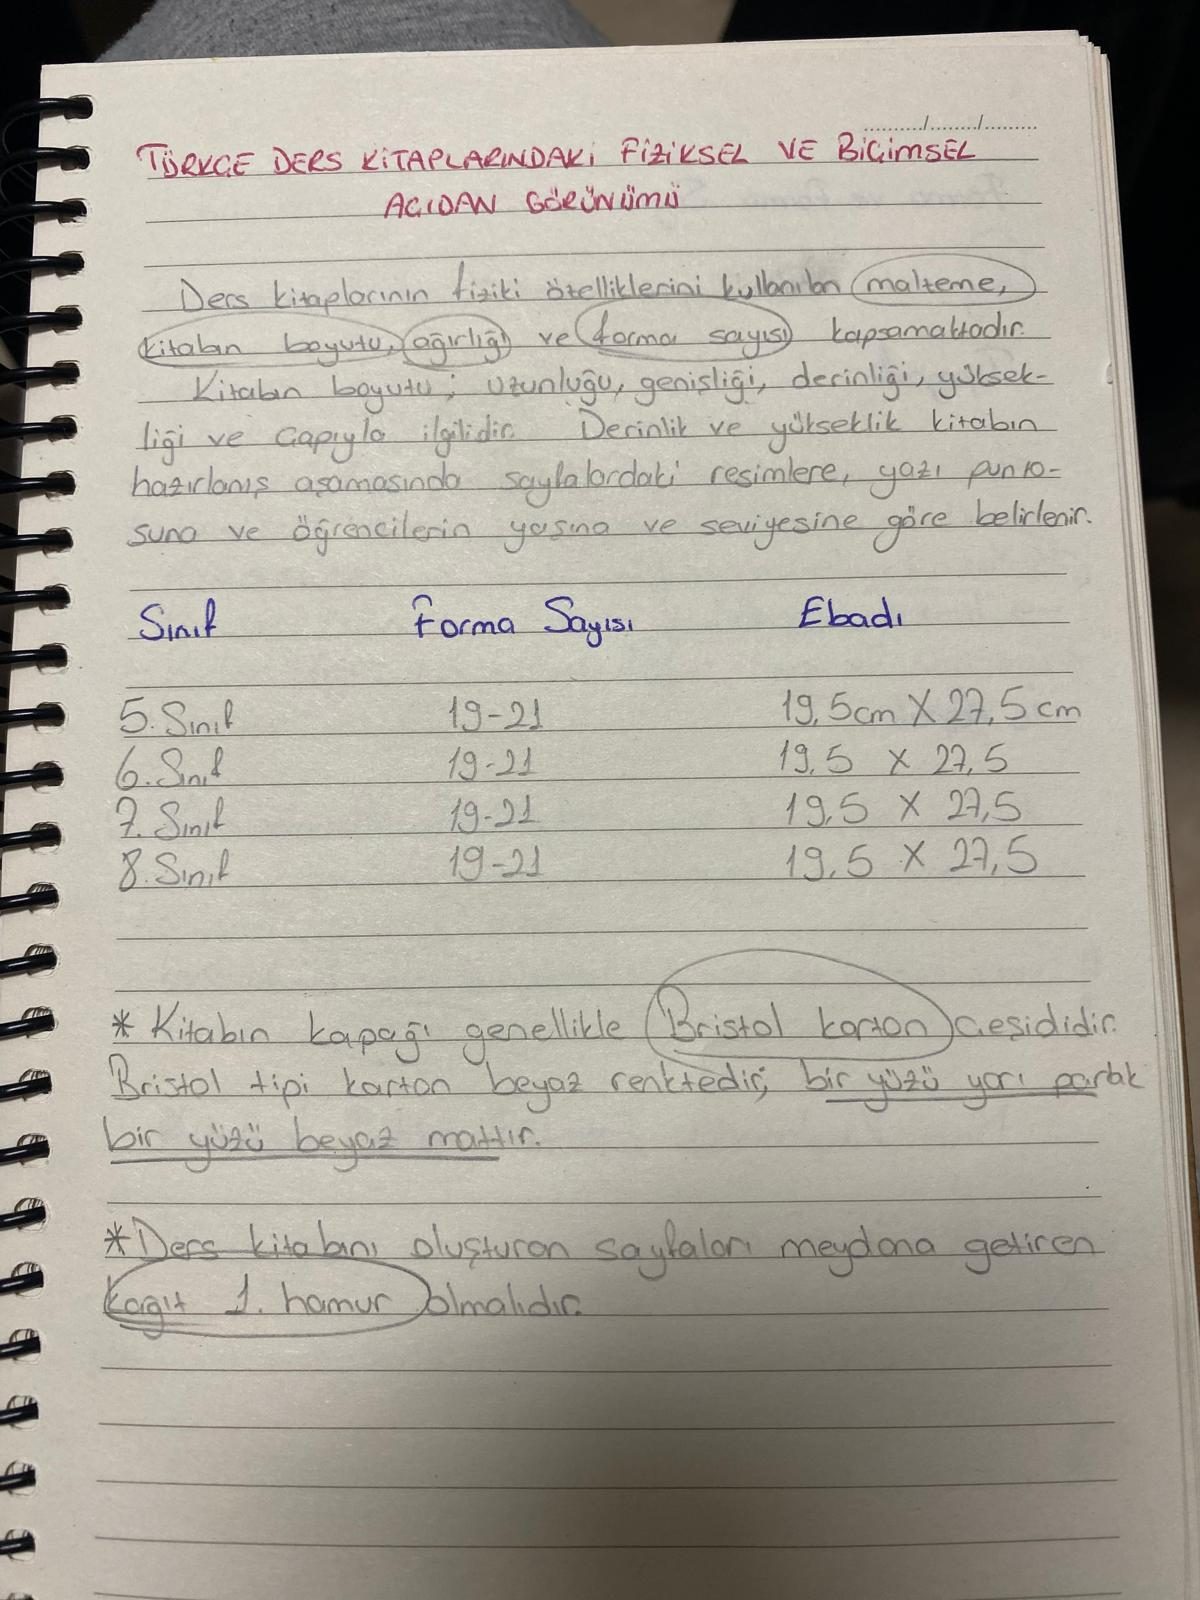 ........../......../.........
TÜRKÇE DERS KİTAPLARINDAKİ FİZİKSEL VE BİÇİMSEL
AÇIDAN GÖRÜNÜMÜ
Ders kitaplarının fiziki özelliklerini kullanılan malzeme,
kitabın boyutu, ağırlığı ve forma sayısı kapsamaktadır.
Kitabın boyutu; uzunluğu, genişliği, derinliği, yüksek-
liği ve çapıyla ilgilidir. Derinlik ve yükseklik kitabın
hazırlanış aşamasında sayfalardaki resimlere, yazı punto-
suna ve öğrencilerin yaşına ve seviyesine göre belirlenir.
Sınıf Forma Sayısı Ebadı
5. Sınıf 19-21 19,5cm X 27,5 cm
6. Sınıf 19-21 19,5 X 27,5
7. Sınıf 19-21 19,5 X 27,5
8. Sınıf 19-21 19,5 X 27,5
* Kitabın kapağı genellikle Bristol karton çeşididir.
Bristol tipi karton beyaz renktedir; bir yüzü yarı parlak
bir yüzü beyaz mattır.
* Ders kitabını oluşturan sayfaları meydana getiren
kağıt 1. hamur olmalıdır.